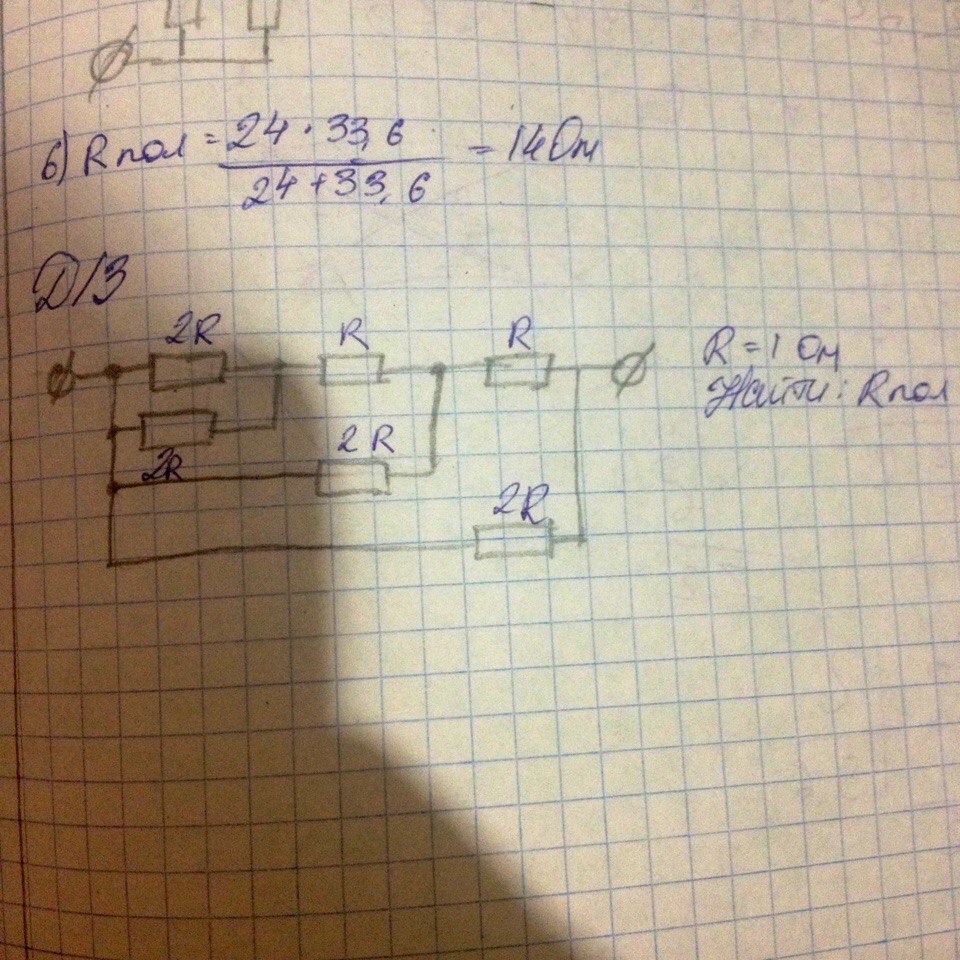 6) Rпол = 24 · 33,6 / 24 + 33,6 = 14 Ом
Д/З
2R R R
R = 1 Ом
Найти: Rпол
2R 2R
2R